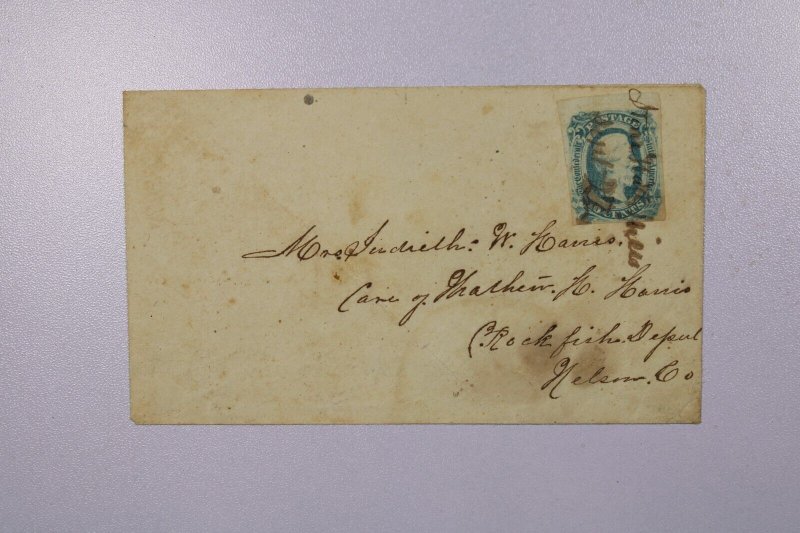 POSTAGE
CENTS
Mrs. Judieth. W. Harris.
Care of Mathew. H. Harris
Rock fish. Depot
Nelson. Co